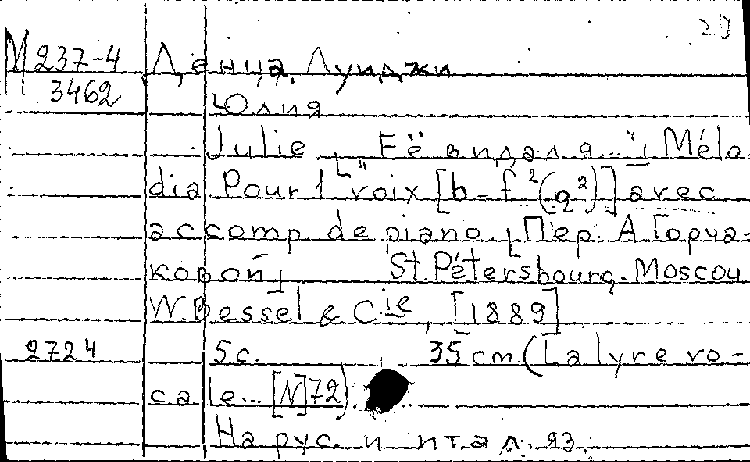 М 237-4 Денца, Луиджи
3462 Юлия
Julie [„Её видал я..."] Mélo
dia Pour 1 voix [b-f²(g²)] avec
accomp. de piano. [Пер. А. Горча-
ковой] St. Pétersbourg-Moscou
W. Bessel & Cie, [1889]
2724 5с. 35 cm (La lyre vo-
cale... [N]72)
На рус. и итал. яз.